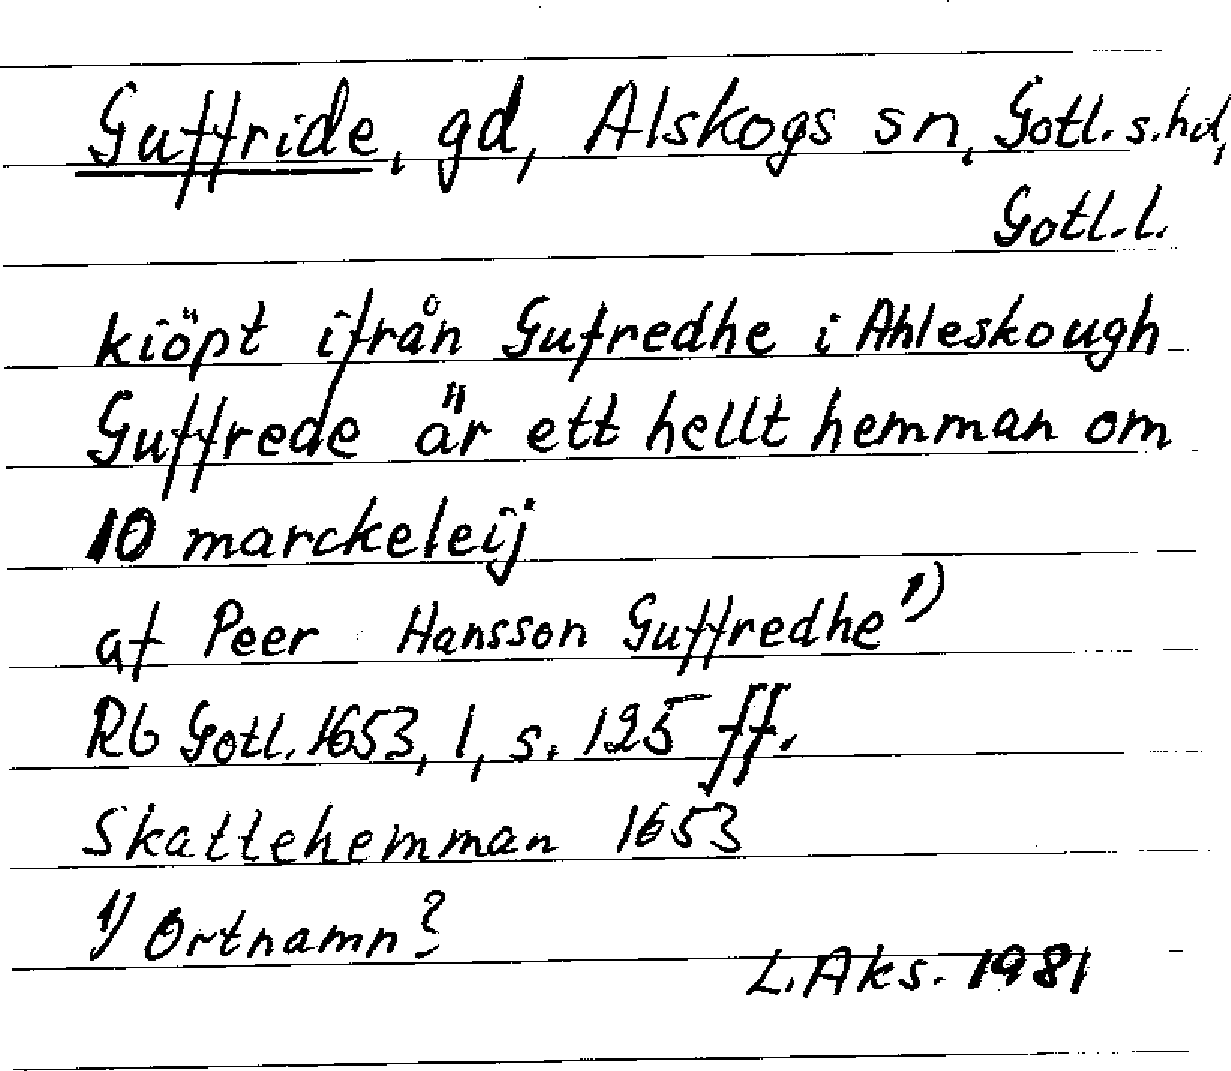 Guffride, gd, Alskogs sn, Gotl. s. hd,
Gotl. l.
kiöpt ifrån Gufredhe i Ahleskough
Guffrede är ett hellt hemman om
10 marckeleij
af Peer Hansson Guffredhe 1)
Rb Gotl. 1653, 1, s. 125 ff.
Skattehemman 1653
1) Ortnamn?
L. Aks. 1981